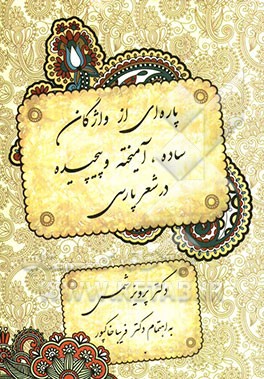 پاره‌ای از واژگان
ساده، آمیخته و پیچیده
در شعر پارسی
دکتر پرویز
به اهتمام دکتر فریبا خاکپور